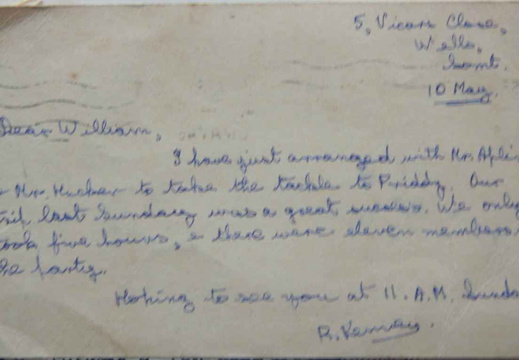 5, Vicars Close,
Wells,
Somt.
10 May.
Dear William,
I have just arranged with Mr.
Mr. to take the tackle to Priddy. Our
last Sunday was a great success. We only
took five hours, & there were eleven members
the party.
Hoping to see you at 11. A.M. Sunda
R.